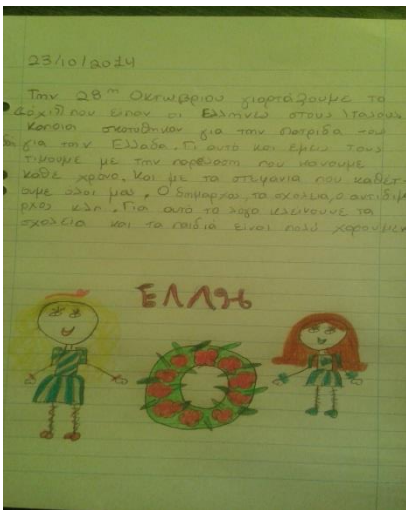 23/10/2014
Την 28η Οκτωβρίου γιορτάζουμε το
όχι που είπαν οι Έλληνες στους Ιταλούς
κάποιοι σκοτώθηκαν για την πατρίδα
για την Ελλάδα. Γι αυτό και εμείς τους
τιμούμε με την παρέλαση που κάνουμε
κάθε χρόνο. Και με τα στεφάνια που καθέτ
ουμε όλοι μας. Ο δήμαρχος, τα σχολεία, ο αντιδήμ
αρχος κλπ. Για αυτό το λόγο κλείνουνε τα
σχολεία και τα παιδιά είναι πολύ χαρούμεν